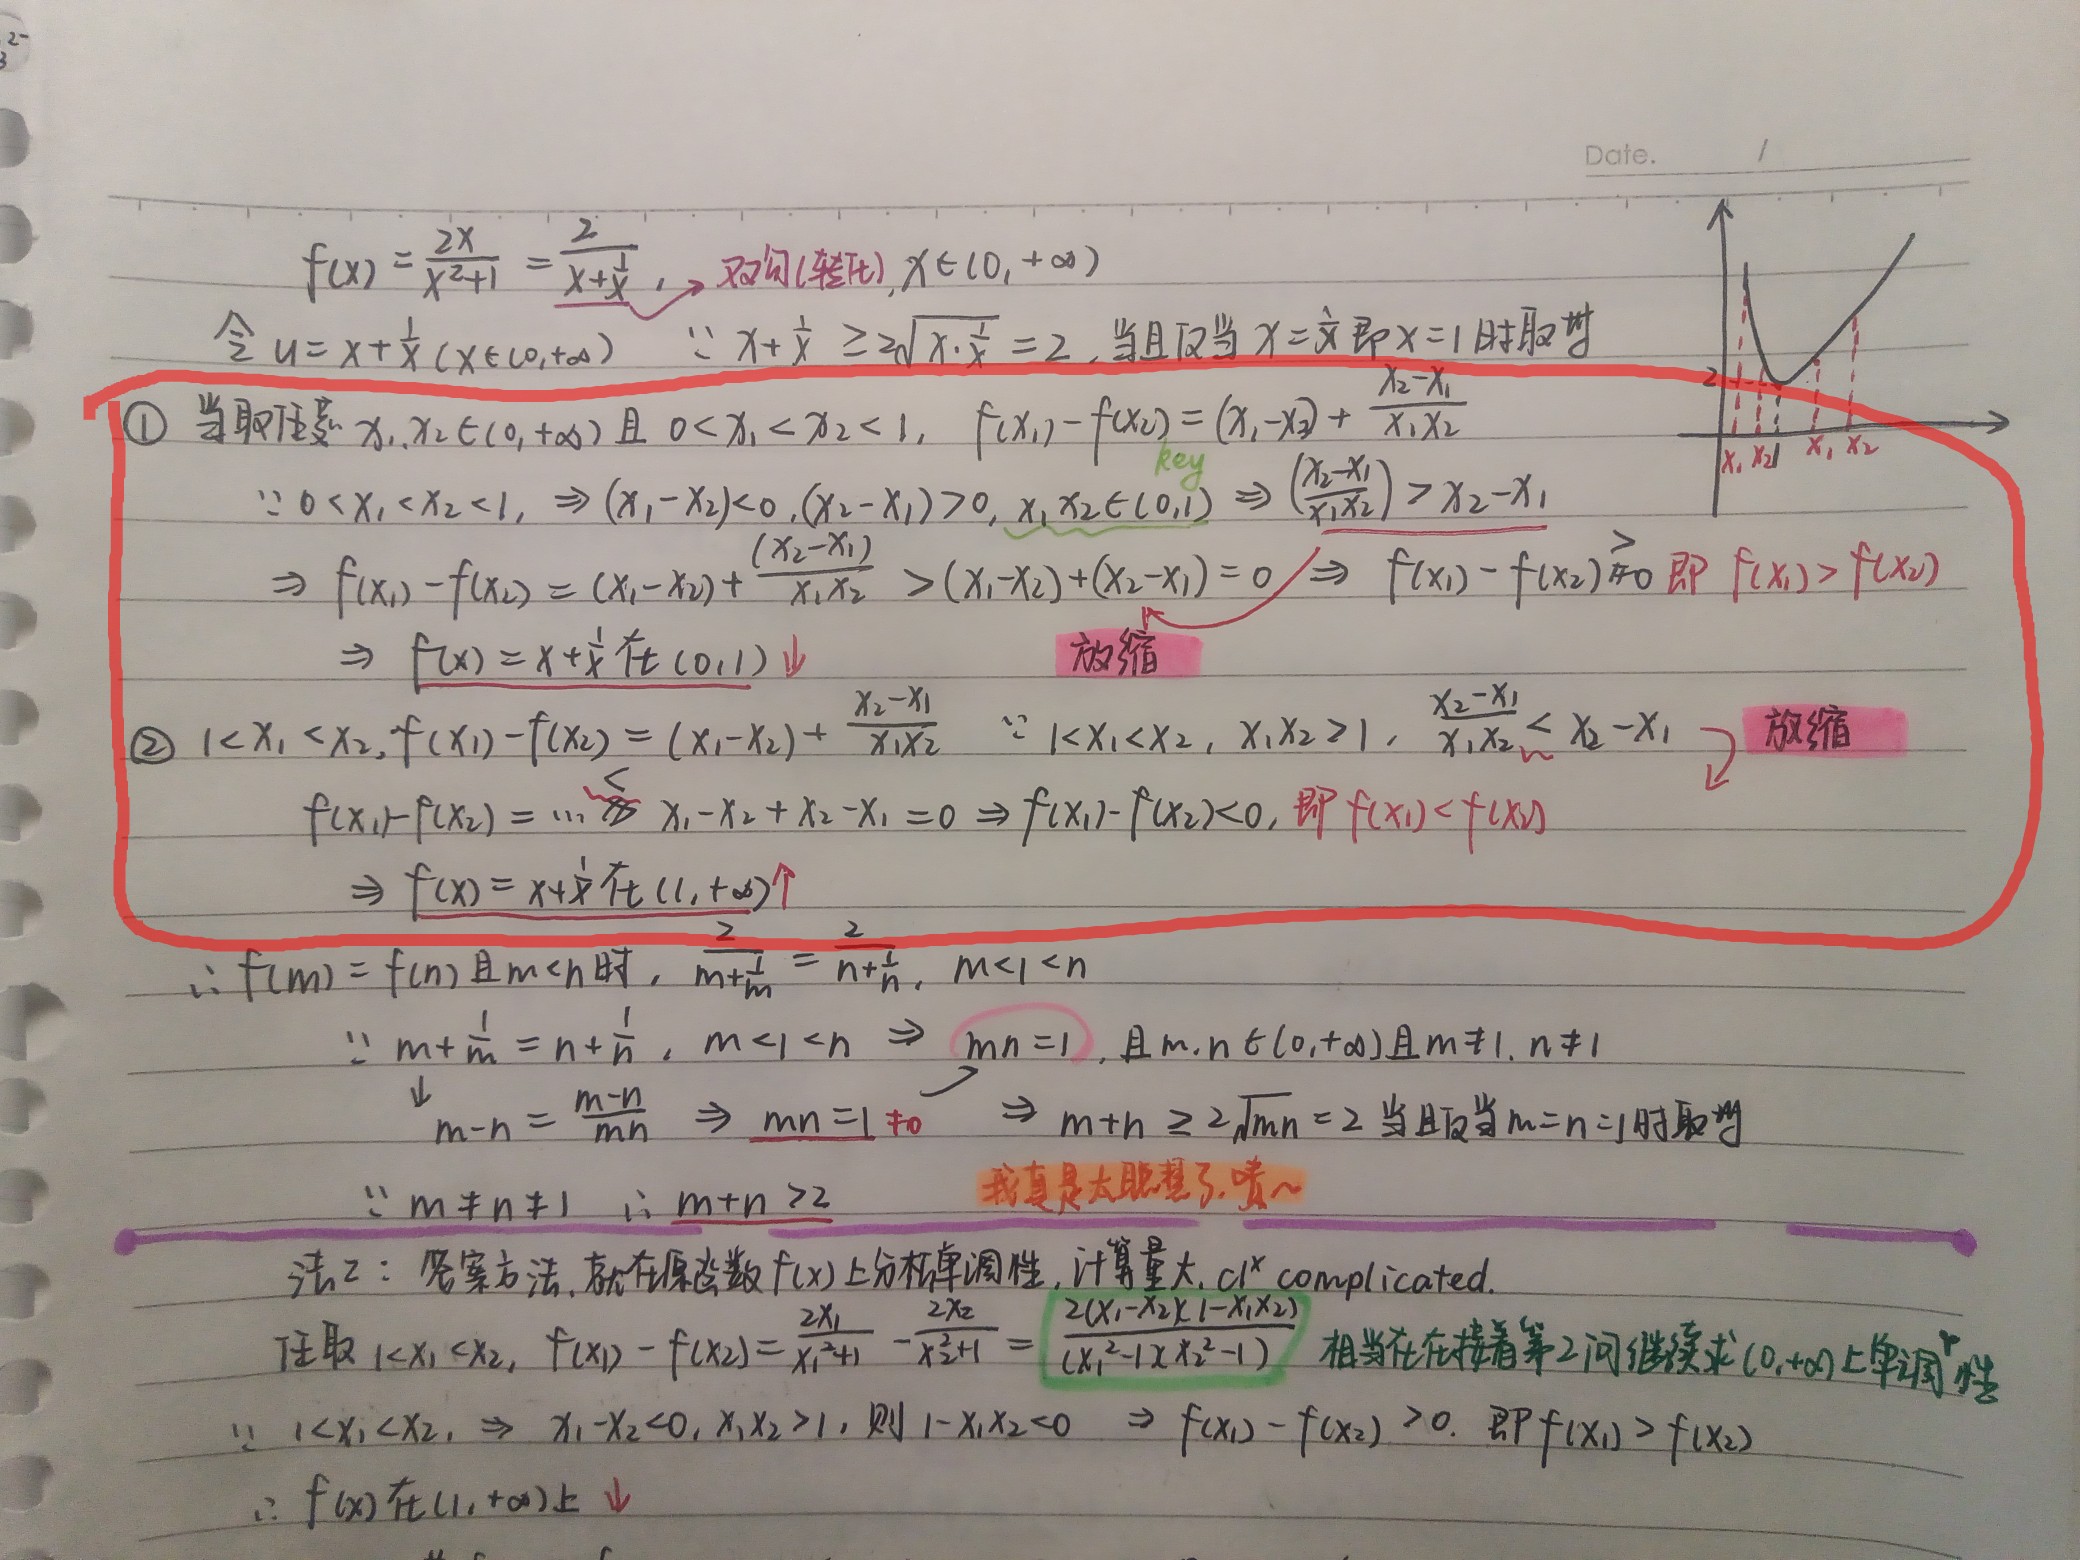 Date. /
f(x) = 2x/(x²+1) = 2/(x+1/x), 双勾(转化), x∈(0,+∞)
令 u = x+1/x (x∈(0,+∞) ∵ x+1/x ≥ 2√(x·1/x) = 2, 当且仅当 x = 1/x 即 x=1 时取"="
2
x₁ x₂ 1 x₁ x₂
① 当取任意 x₁, x₂∈(0,+∞) 且 0<x₁<x₂<1, f(x₁)-f(x₂) = (x₁-x₂) + (x₂-x₁)/(x₁x₂)
key
∵ 0<x₁<x₂<1, ⇒ (x₁-x₂)<0, (x₂-x₁)>0, x₁x₂∈(0,1) ⇒ ((x₂-x₁)/(x₁x₂)) > x₂-x₁
⇒ f(x₁)-f(x₂) = (x₁-x₂) + (x₂-x₁)/(x₁x₂) > (x₁-x₂)+(x₂-x₁) = 0 ⇒ f(x₁)-f(x₂)>0 即 f(x₁)>f(x₂)
⇒ f(x) = x+1/x 在 (0,1) ↓ 放缩
② 1<x₁<x₂, f(x₁)-f(x₂) = (x₁-x₂) + (x₂-x₁)/(x₁x₂) ∵ 1<x₁<x₂, x₁x₂>1, (x₂-x₁)/(x₁x₂) < x₂-x₁ 放缩
f(x₁)-f(x₂) = … < x₁-x₂+x₂-x₁ = 0 ⇒ f(x₁)-f(x₂)<0, 即 f(x₁)<f(x₂)
⇒ f(x) = x+1/x 在 (1,+∞) ↑
∴ f(m) = f(n) 且 m<n 时, 2/(m+1/m) = 2/(n+1/n), m<1<n
∵ m+1/m = n+1/n, m<1<n ⇒ mn=1, 且 m,n∈(0,+∞) 且 m≠1, n≠1
↓ m-n = (m-n)/(mn) ⇒ mn=1≠0 ⇒ m+n ≥ 2√mn = 2 当且仅当 m=n=1 时取"="
∵ m≠n≠1 ∴ m+n>2 我真是太聪慧了,啧~
法2: 答案方法,就在原函数 f(x) 上分析单调性, 计算量大, complicated.
任取 1<x₁<x₂, f(x₁)-f(x₂) = 2x₁/(x₁²+1) - 2x₂/(x₂²+1) = 2(x₁-x₂)(1-x₁x₂)/((x₁²-1)(x₂²-1)) 相当在在接着第2问继续求(0,+∞)上单调性
∵ 1<x₁<x₂, ⇒ x₁-x₂<0, x₁x₂>1, 则 1-x₁x₂<0 ⇒ f(x₁)-f(x₂)>0. 即 f(x₁)>f(x₂)
∴ f(x) 在 (1,+∞) 上 ↓